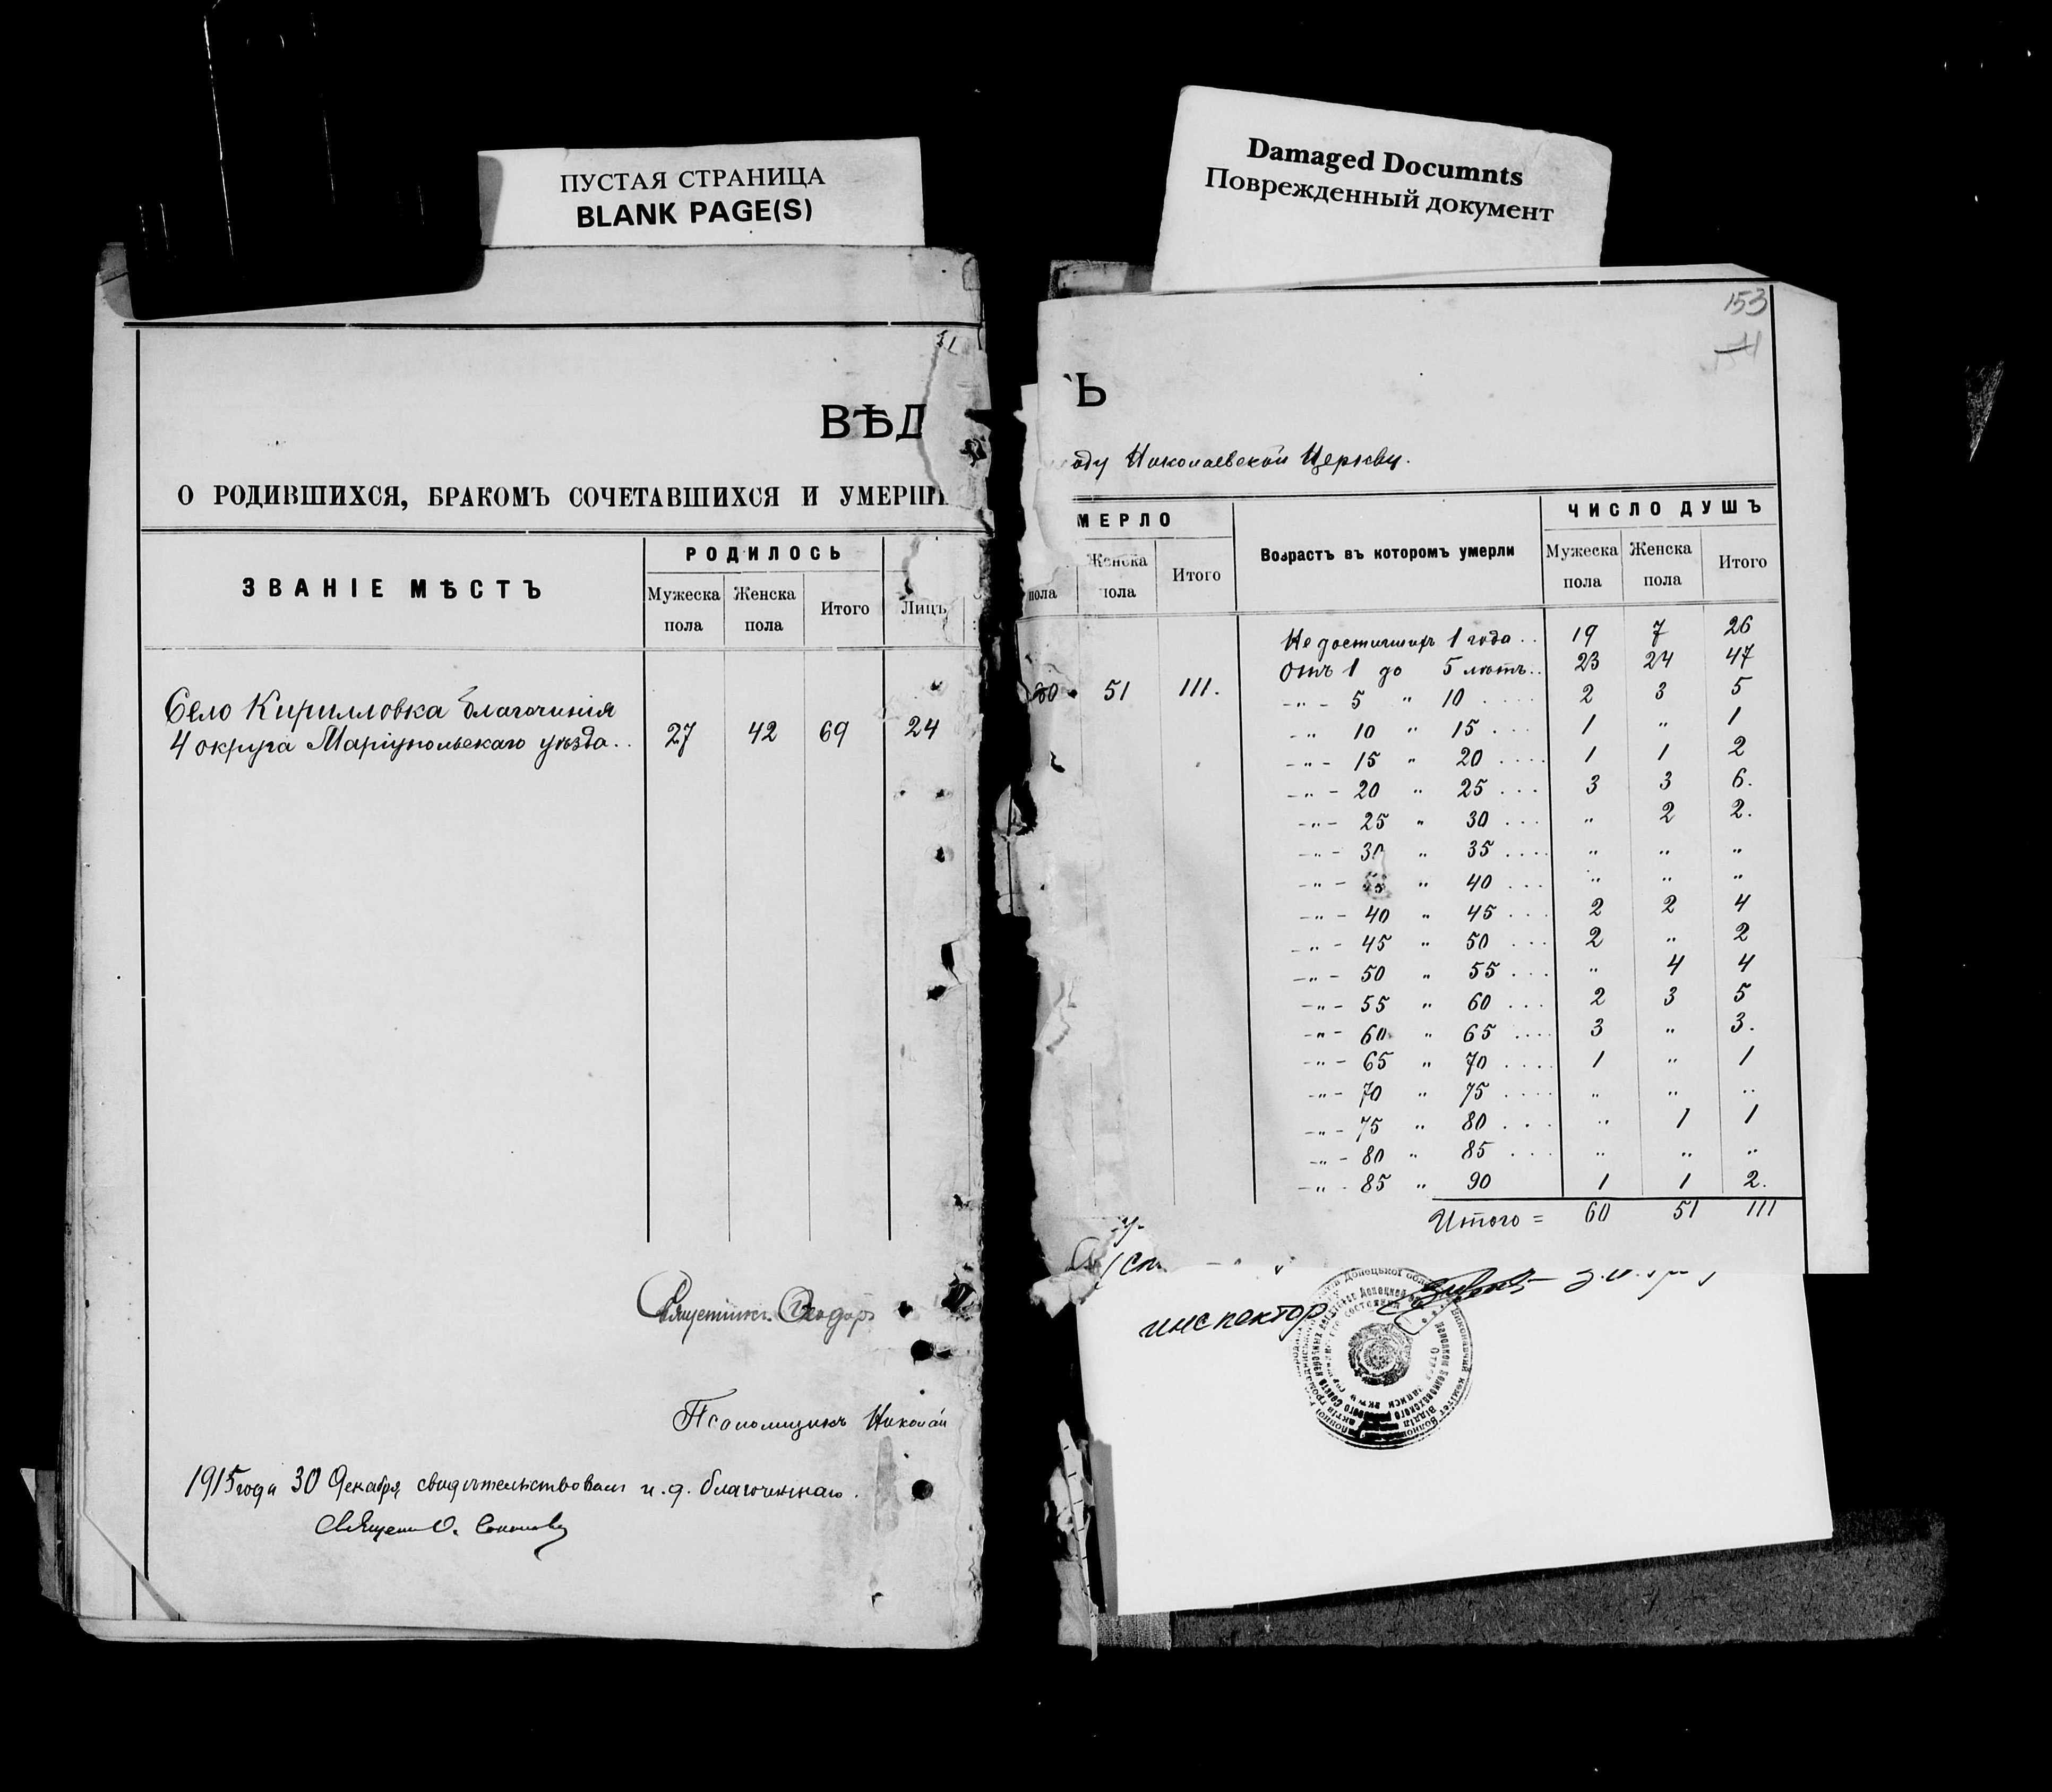 ПУСТАЯ СТРАНИЦА
BLANK PAGE(S)
ВѢД
О РОДИВШИХСЯ, БРАКОМЪ СОЧЕТАВШИХСЯ И УМЕРШ
ЗВАНІЕ МѢСТЪ
РОДИЛОСЬ
Мужеска пола
Женска пола
Итого
Лицъ
Село Кирилловка благочинія
4 округа Маріупольскаго уѣзда..
27 42 69 24
Священникъ Ѳеодоръ
Псаломщикъ Николай
1915 года 30 Декабря свидѣтельствовалъ и. д. благочиннаго.
Священ. О. Соколовъ
Damaged Documnts
Поврежденный документ
153
Ь
оду Николаевской Церкви.
МЕРЛО
пола
Женска пола
Итого
Возрастъ въ которомъ умерли
ЧИСЛО ДУШЪ
Мужеска пола
Женска пола
Итого
60 51 111.
Не достигшихъ 1 года .. 19 7 26
Отъ 1 до 5 лѣтъ.. 23 24 47
-"- 5 " 10 .... 2 3 5
-"- 10 " 15 ... 1 " 1
-"- 15 " 20 .... 1 1 2
-"- 20 " 25 ... 3 3 6.
-"- 25 " 30 ... " 2 2.
-"- 30 " 35 .... " " "
-"- 35 " 40 ... " " "
-"- 40 " 45 ... 2 2 4
-"- 45 " 50 ... 2 " 2
-"- 50 " 55 ... " 4 4
-"- 55 " 60 ... 2 3 5
-"- 60 " 65 .... 3 " 3.
-"- 65 " 70 .... 1 " 1
-"- 70 " 75 .... " " "
-"- 75 " 80 ... " 1 1
-"- 80 " 85 ... " " "
-"- 85 " 90 1 1 2.
Итого = 60 51 111
инспектор